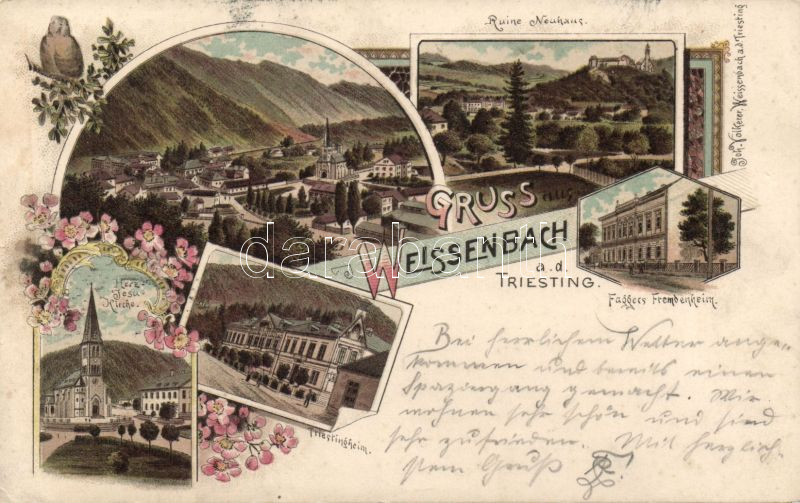 Ruine Neuhaus.
Joh. Volkerer, Weissenbach a.d. Triesting
GRUSS aus
WEISSENBACH
a.d.
TRIESTING.
Faggers Fremdenheim.
Herz-
Jesu
Kirche.
Triestingheim.
darabanth.com
Bei herrlichem Wetter ange-
kommen und bereits einen
Spaziergang gemacht. Wir
wohnen sehr schön und sind
sehr zufrieden. Mit herzlich-
stem Gruß